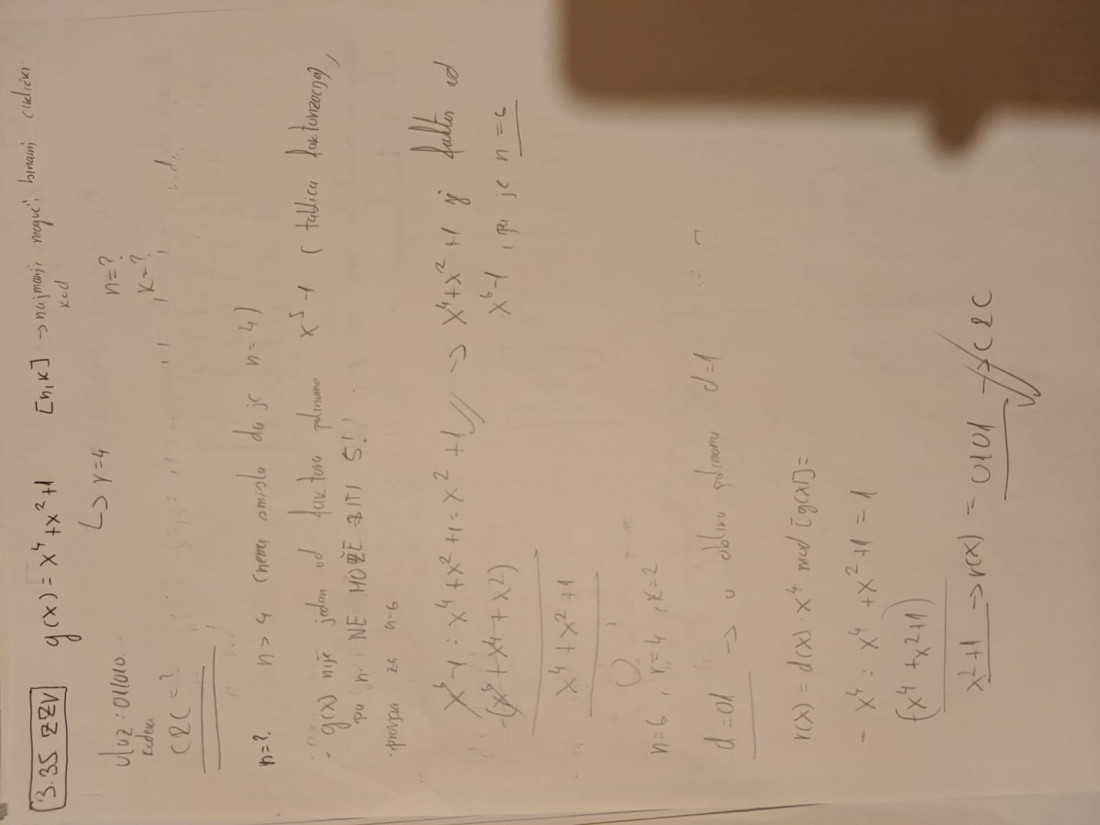 3.35 ZZV g(x) = x⁴+x²+1 [n,k] → najmanji mogući binarni ciklički
kod
↳ r=4
Ulaz: 011010 n=?
kodera , k=?
CRC = ?
n=? n > 4 (nema smisla da je n=4)
g(x) nije jedan od faktora polinoma x⁵-1 (tablica faktorizacija),
pa n NE MOŽE BITI 5!!
provjera za n=6
x⁶-1 : x⁴+x²+1 = x²+1 // → x⁴+x²+1 je faktor od
-(x⁶+x⁴+x²) x⁶-1, pa je n=6
x⁴+x²+1
n=6, r=4, k=2
d=01 → u obliku polinoma d=1
r(x) = d(x)·x⁴ mod [g(x)] =
- x⁴ : x⁴+x²+1 = 1
(x⁴+x²+1)
x²+1 → r(x) = 0101 → CRC